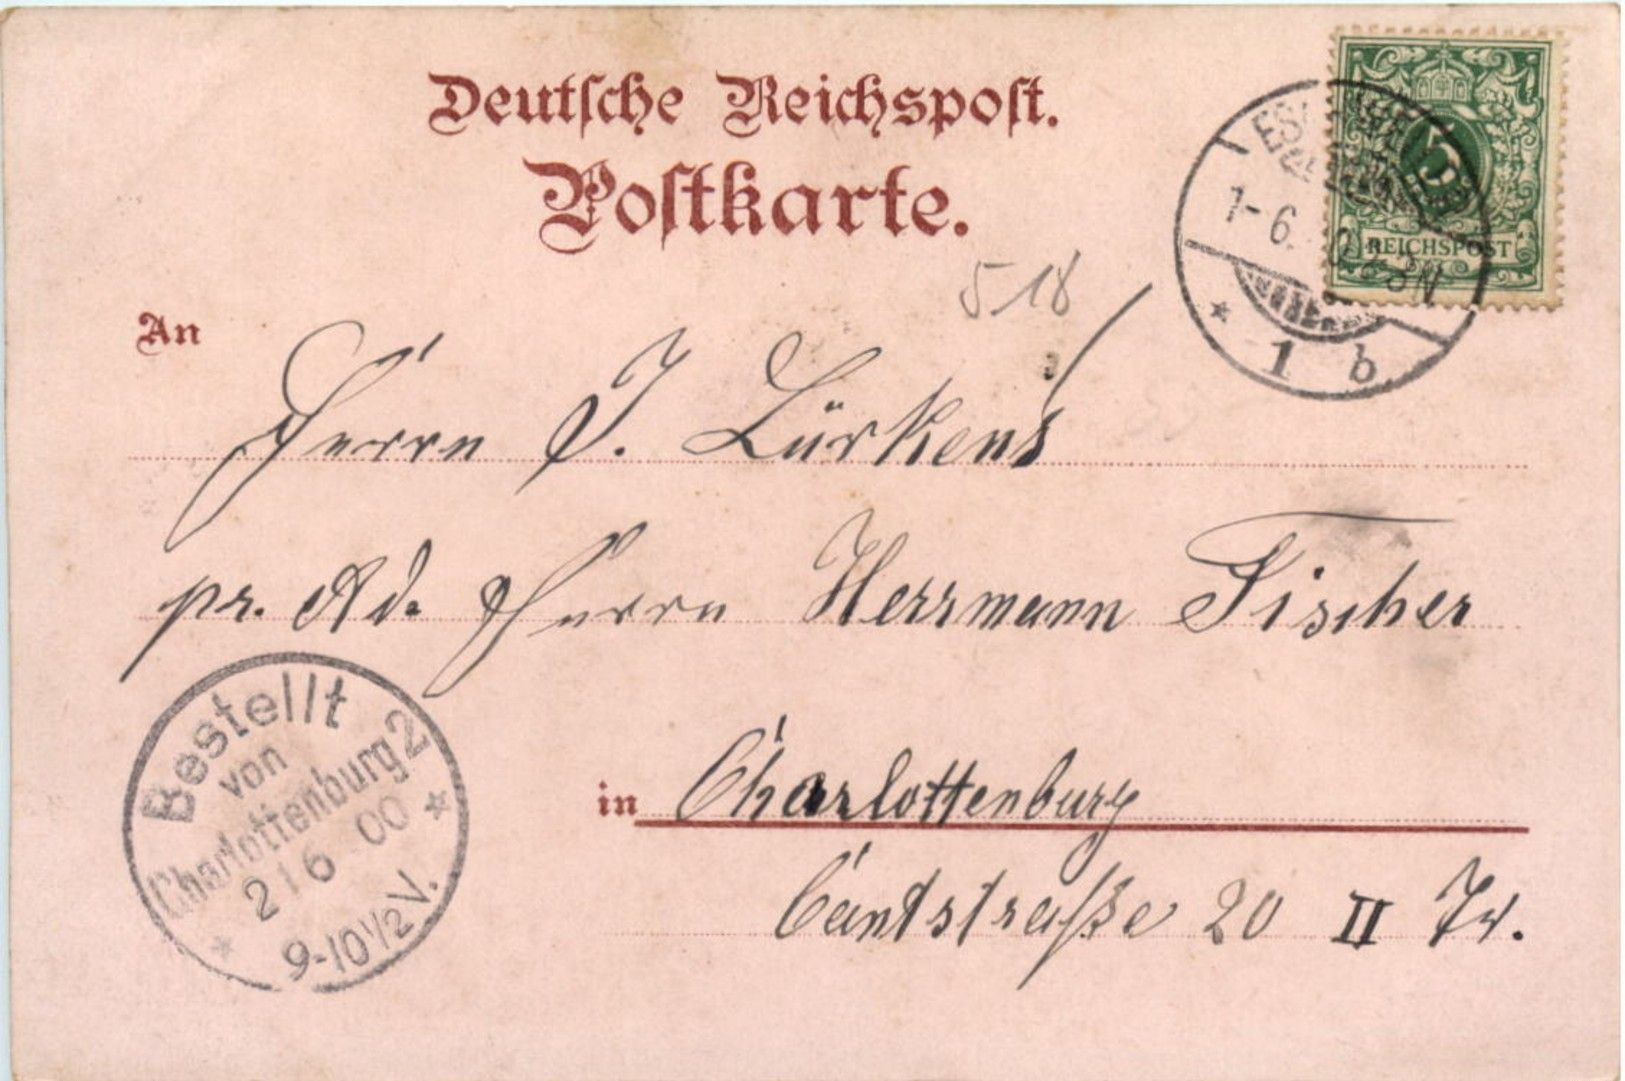 Deutsche Reichspost.
Postkarte.
5
REICHSPOST
1-6. 0 2-3N
1 b
518
An
Herrn J. Lürkens
pr. Ad. Herrn Herrmann Fischer
in Charlottenburg
Cantstraße 20 II Tr.
Bestellt
von
Charlottenburg 2
2 6 00
9-10 1/2 V.